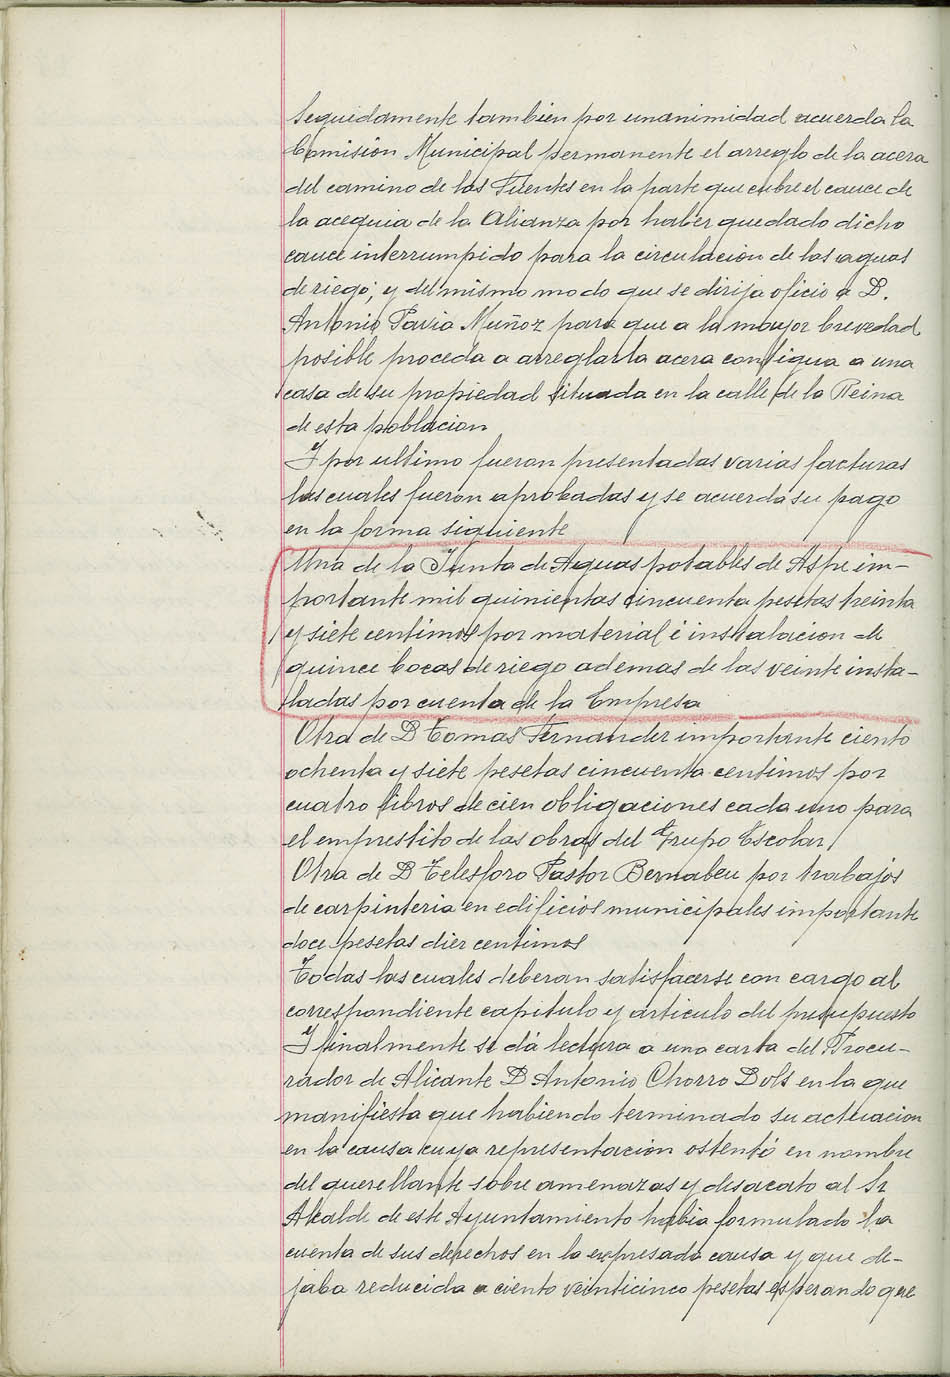 Seguidamente tambien por unanimidad acuerda la
Comision Municipal permanente el arreglo de la acera
del camino de las Fuentes en la parte que cubre el cauce de
la acequia de la Alianza por haber quedado dicho
cauce interrumpido para la circulacion de las aguas
de riego; y del mismo modo que se dirija oficio a D.
Antonio Pavia Muñoz para que a la mayor brevedad
posible proceda a arreglar la acera contigua a una
casa de su propiedad situada en la calle de la Reina
de esta poblacion
Y por ultimo fueron presentadas varias facturas
las cuales fueron aprobadas y se acuerda su pago
en la forma siguiente
Una de la Junta de Aguas potables de Aspe im-
portante mil quinientas cincuenta pesetas treinta
y siete centimos por material é instalacion de
quince bocas de riego ademas de las veinte insta-
ladas por cuenta de la Empresa
Otra de D Tomas Fernandez importante ciento
ochenta y siete pesetas cincuenta centimos por
cuatro libros de cien obligaciones cada uno para
el emprestito de las obras del Grupo Escolar
Otra de D Telesforo Pastor Bernabeu por trabajos
de carpinteria en edificios municipales importante
doce pesetas diez centimos
Todas las cuales deberan satisfacerse con cargo al
correspondiente capitulo y articulo del presupuesto
Y finalmente se dá lectura a una carta del Procu-
rador de Alicante D Antonio Chorro Dols en la que
manifiesta que habiendo terminado su actuacion
en la causa cuya representacion ostentó en nombre
del querellante sobre amenazas y desacato al Sr
Alcalde de este Ayuntamiento habia formulado la
cuenta de sus derechos en la expresada causa y que de-
jaba reducida a ciento veinticinco pesetas esperando que